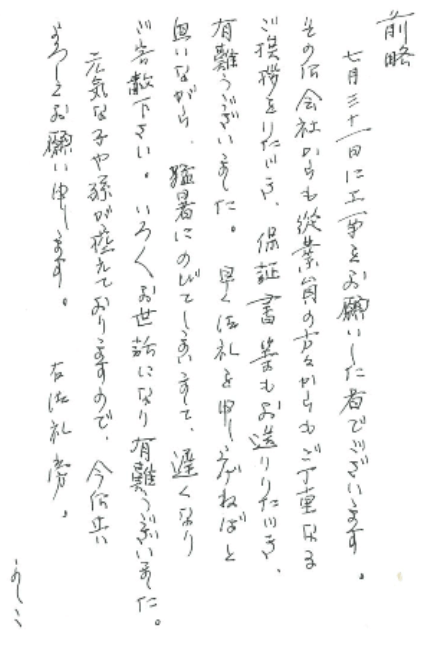 前略
七月三十一日に工事をお願いした者でございます。
その后会社からも従業員の方々からもご丁重なる
ご挨拶をいただき、保証書等もお送りいただき、
有難うございました。早く御礼を申し上げねばと
思いながら、猛暑にのびてしまいまして、遅くなり
ご容赦下さい。いろくお世話になり有難うございました。
元気な子や孫が控えておりますので、今后共
よろしくお願い申します。 右御礼旁。